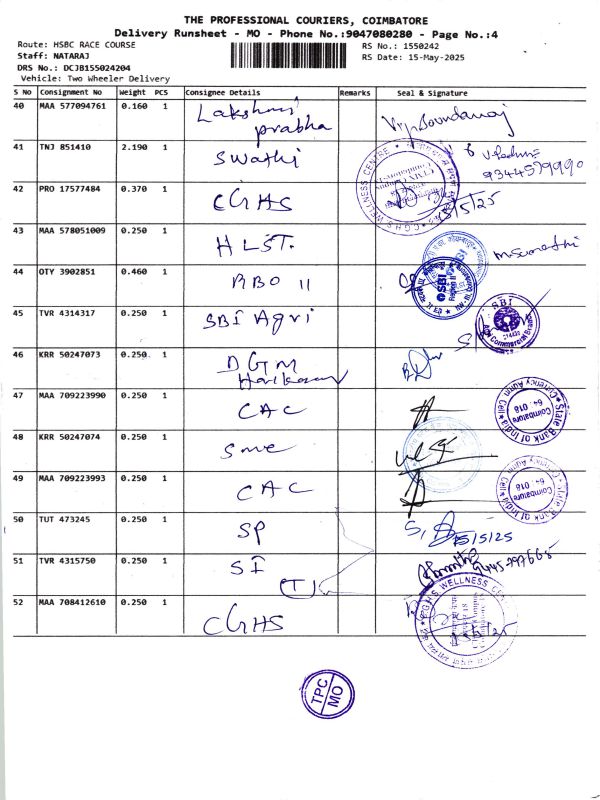 THE PROFESSIONAL COURIERS, COIMBATORE
Delivery Runsheet - MO - Phone No.:9047080280 - Page No.:4
Route: HSBC RACE COURSE
RS No.: 1550242
Staff: NATARAJ
RS Date: 15-May-2025
DRS No.: DCJB155024204
Vehicle: Two Wheeler Delivery
S No Consignment No Weight PCS Consignee Details Remarks Seal & Signature
40 MAA 577094761 0.160 1 Lakshmi
prabha
41 TNJ 851410 2.190 1 Swathi
9344579990
C.G.H.S WELLNESS CENTRE
42 PRO 17577484 0.370 1 CGHS
15/5/25
43 MAA 578051009 0.250 1 HLST.
44 OTY 3902851 0.460 1 RBO 11
SBI
45 TVR 4314317 0.250 1 SBI Agri
SBI
46 KRR 50247073 0.250 1 DGM
47 MAA 709223990 0.250 1 CAC
State Bank of India
Currency Admn. Cell
64 : 018
Coimbatore
48 KRR 50247074 0.250 1 Sme
49 MAA 709223993 0.250 1 CAC
State Bank of India
Currency Admn. Cell
64 : 018
Coimbatore
50 TUT 473245 0.250 1 SP
15/5/25
51 TVR 4315750 0.250 1 SI
52 MAA 708412610 0.250 1 CGHS
C.G.H.S WELLNESS CENTRE
TPC
MO